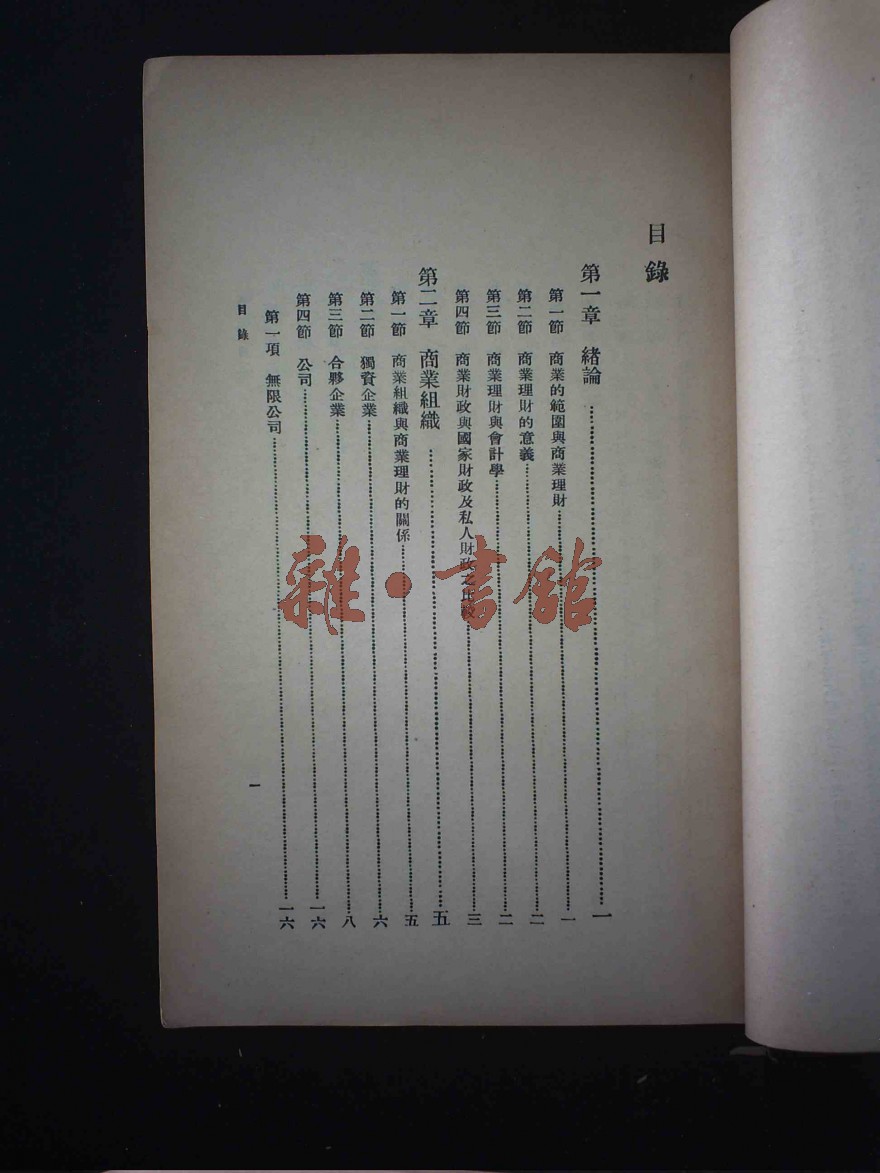 目錄
第一章 緒論……一
第一節 商業的範圍與商業理財……一
第二節 商業理財的意義……二
第三節 商業理財與會計學……二
第四節 商業財政與國家財政及私人財政之比較……三
第二章 商業組織……五
第一節 商業組織與商業理財的關係……五
第二節 獨資企業……六
第三節 合夥企業……八
第四節 公司……一六
第一項 無限公司……一六
目錄
一
雜·書館